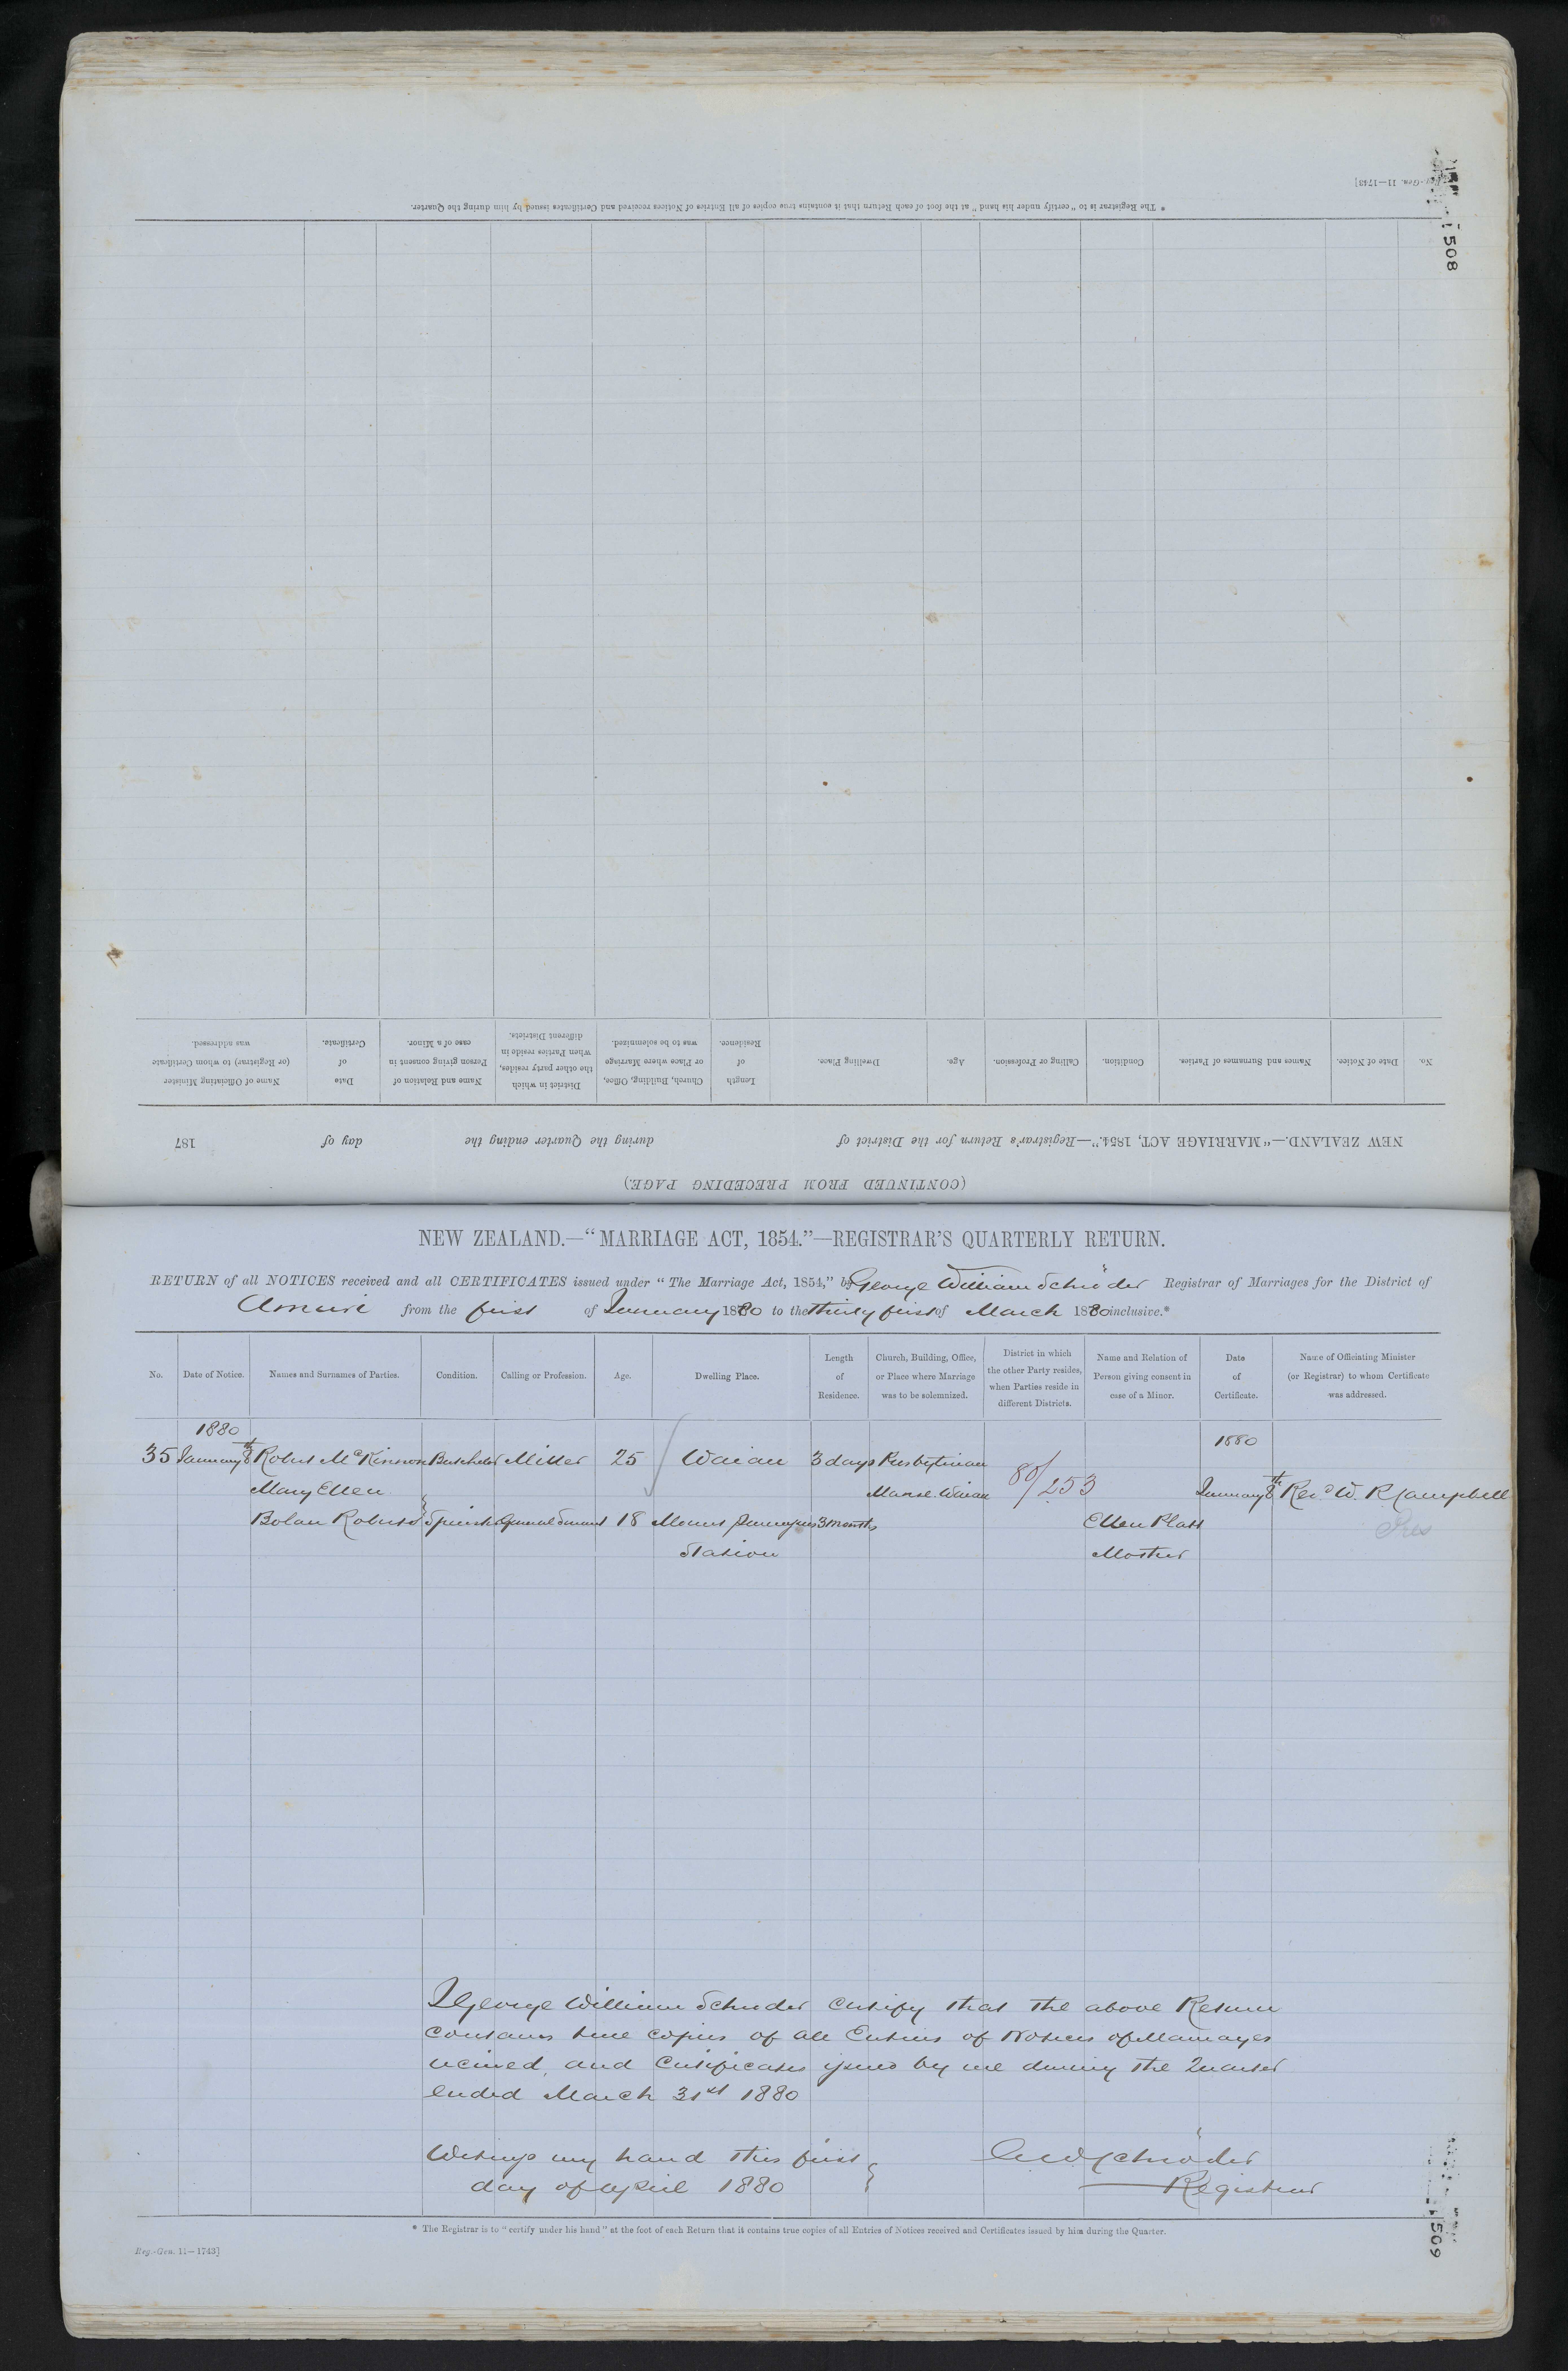 Reg.-Gen. 11—1743]
508
* The Registrar is to "certify under his hand" at the foot of each Return that it contains true copies of all Entries of Notices received and Certificates issued by him during the Quarter.
(CONTINUED FROM PRECEDING PAGE.)
NEW ZEALAND.—"MARRIAGE ACT, 1854."—Registrar's Return for the District of during the Quarter ending the day of 187
No. Date of Notice. Names and Surnames of Parties. Condition. Calling or Profession. Age. Dwelling Place. Length of Residence. Church, Building, Office, or Place where Marriage was to be solemnized. District in which the other party resides, when Parties reside in different Districts. Name and Relation of Person giving consent in case of a Minor. Date of Certificate. Name of Officiating Minister (or Registrar) to whom Certificate was addressed.
NEW ZEALAND.—"MARRIAGE ACT, 1854."—REGISTRAR'S QUARTERLY RETURN.
RETURN of all NOTICES received and all CERTIFICATES issued under "The Marriage Act, 1854," by George William Schröder Registrar of Marriages for the District of
Amuri from the first of January 1880 to the thirty first of March 1880 inclusive.*
No. Date of Notice. Names and Surnames of Parties. Condition. Calling or Profession. Age. Dwelling Place. Length of Residence. Church, Building, Office, or Place where Marriage was to be solemnized. District in which the other Party resides, when Parties reside in different Districts. Name and Relation of Person giving consent in case of a Minor. Date of Certificate. Name of Officiating Minister (or Registrar) to whom Certificate was addressed.
1880 1880
35 January 8th Robert McKinnon Batchelor Miller 25 Waiau 3 days Presbyterian
Mary Ellen Manse Waiau 80/253 January 8th Revd W. R. Campbell
Bolan Roberts Spinster General Servant 18 Mount 3 months Ellen Platt Pres
Station Mother
I George William Schroder certify that the above Return
contains true copies of all Entries of Notices of Marriages
received, and Certificates issued by me during the Quarter
ended March 31st 1880
Witness my hand this first
day of April 1880
G W Schröder
Registrar
* The Registrar is to "certify under his hand" at the foot of each Return that it contains true copies of all Entries of Notices received and Certificates issued by him during the Quarter.
Reg.-Gen. 11—1743]
1509